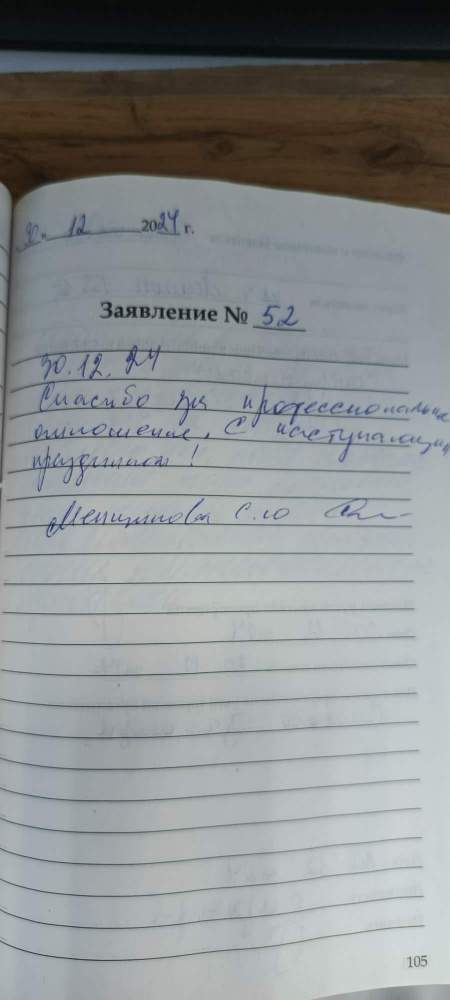 30 12 2024 г.
Заявление № 52
30.12.24
Спасибо за профессиональное
отношение, С наступающим
праздником!
Меньшикова С.Ю
105